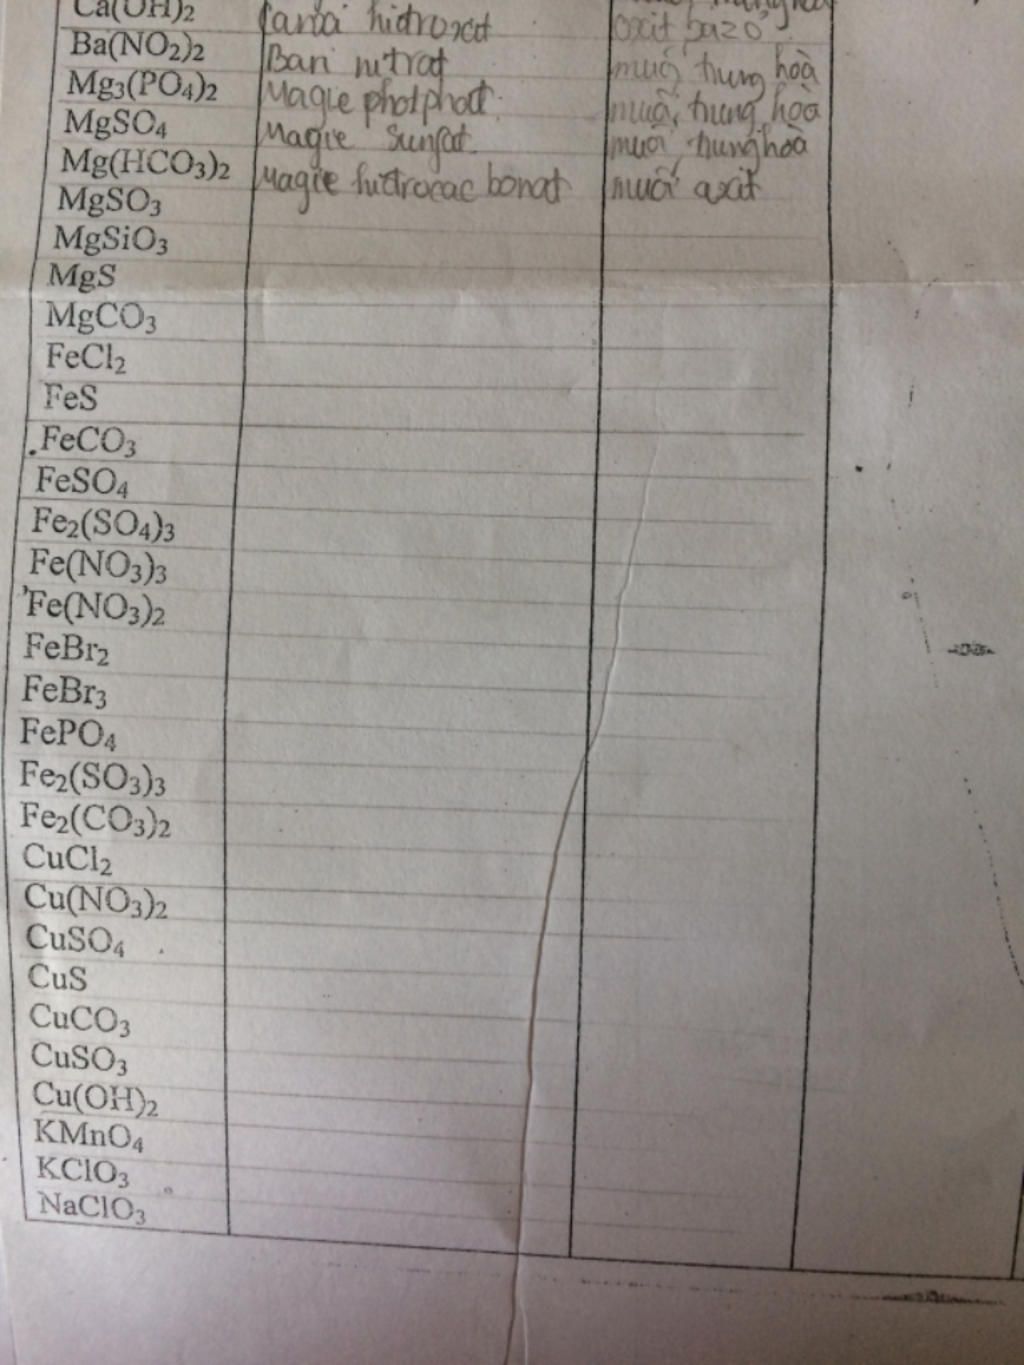 Ca(OH)2 canxi hidroxit oxit bazơ
Ba(NO2)2 Bari nitrat muối trung hoà
Mg3(PO4)2 Magie photphat muối trung hoà
MgSO4 Magie sunfat. muối trung hoà
Mg(HCO3)2 Magie hidrocac bonat muối axit
MgSO3
MgSiO3
MgS
MgCO3
FeCl2
FeS
FeCO3
FeSO4
Fe2(SO4)3
Fe(NO3)3
Fe(NO3)2
FeBr2
FeBr3
FePO4
Fe2(SO3)3
Fe2(CO3)2
CuCl2
Cu(NO3)2
CuSO4
CuS
CuCO3
CuSO3
Cu(OH)2
KMnO4
KClO3
NaClO3